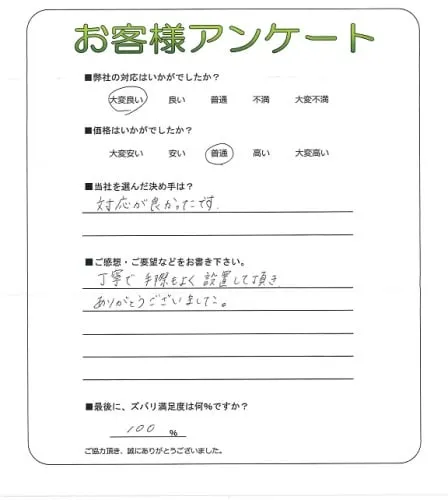 お客様アンケート
■弊社の対応はいかがでしたか？
大変良い 良い 普通 不満 大変不満
■価格はいかがでしたか？
大変安い 安い 普通 高い 大変高い
■当社を選んだ決め手は？
対応が良かったです.
■ご感想・ご要望などをお書き下さい。
丁寧で手際もよく設置して頂き
ありがとうございました。
■最後に、ズバリ満足度は何%ですか？
100 %
ご協力頂き、誠にありがとうございました。